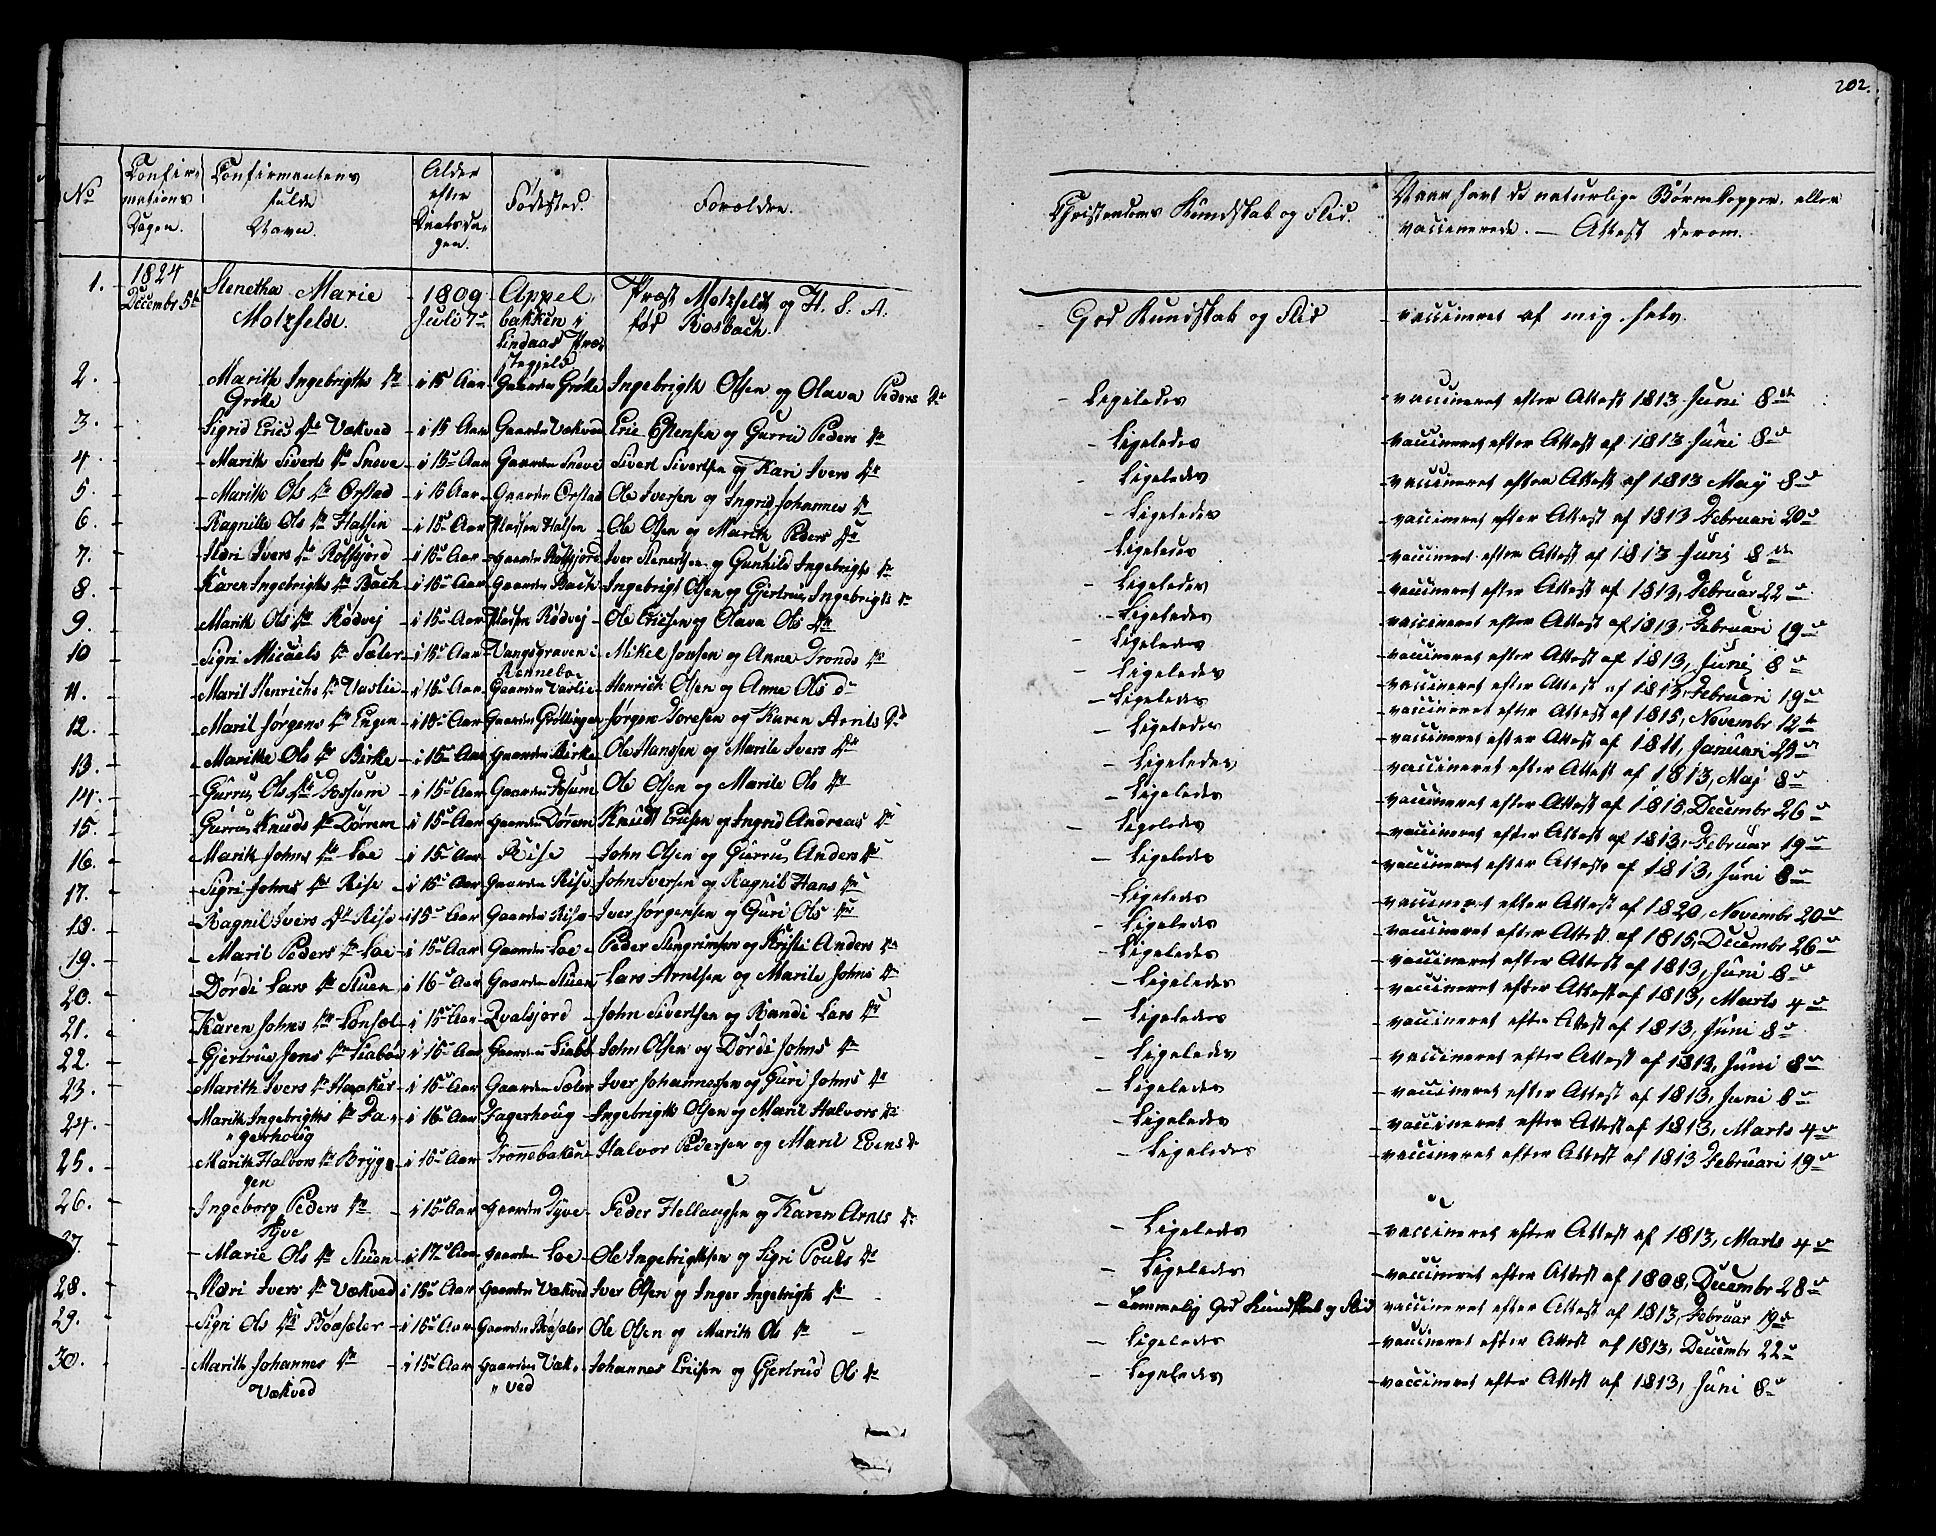 202.
No
Confir-
mations
Dagen.
Confirmantens
fulde
Navn.
Alder
efter
Daabsda-
gen.
Fødested.
Forældre.
Christendoms Kundskab og Flid.
Naar havt de naturlige Børnekopper, eller
vaccinerede. — Attest derom.
1. 1824 Decembr 5te Stenetha Marie Motzfeldt. 1809 Juli 7de Appelbakken i Lindaas Præstegjeld Præst Motzfeldt og H. S. A. fød Rosbach. God Kundskab og Flid vaccineret af mig selv.
2. Marith Ingebrigths Dr Grøtte i 15 Aar Gaarden Grøtte Ingebrigth Olsen og Olava Peders Dr Ligeledes vaccineret efter Attest 1813 Juni 8de
3. Sigrid Erics Dr Vækved i 15 Aar Gaarden Vækved Eric Estensen og Gurru Peders Dr Ligeledes vaccineret efter Attest af 1813 Juni 8de
4. Marith Siverts Dr Sneve i 15de Aar Gaarden Sneve Sivert Sivertsen og Kari Ivers Dr Ligeledes vaccineret efter Attest af 1813 May 8de
5. Marith Ols Dr Ørstad i 16 Aar Gaarden Ørstad Ole Iversen og Ingrid Johannes Dr Ligeledes vaccineret efter Attest af 1813 Februari 20de
6. Ragnille Ols Dr Halsen i 15de Aar Pladsen Halsen Ole Olsen og Marith Peders Dr Ligeledes vaccineret efter Attest af 1813 Juni 8de
7. Ildri Ivers Dr Rolfsjord i 15de Aar Gaarden Rolfsjord Iver Stenersen og Gunhild Ingebrigts Dr Ligeledes vaccineret efter Attest af 1813, Februar 22de
8. Karen Ingebrigths Dr Bach i 16de Aar Gaarden Bach Ingebrigt Olsen og Gjertrue Ingebrigts Dr Ligeledes vaccineret efter Attest af 1813, Februari 19de
9. Marith Ols Dr Rødvej i 15de Aar Pladsen Rødvej Ole Ericsen og Olava Ols Dr Ligeledes vaccineret efter Attest af 1813, Juni 8de
10 Sigri Micaels Dr Sæter i 15de Aar Vangsgraven i Rennebo Mikel Jonsen og Anne Tronds Dr Ligeledes vaccineret efter Attest af 1813, Februari 19de
11. Marit Henrichs Dr Vaslie i 15de Aar Gaarden Vaslie Henrich Olsen og Anne Ols Dr Ligeledes vaccineret efter Attest af 1815, Novembr 12te
12. Marit Jørgens Dr Engen i 18de Aar Gaarden Jørgen Toresen og Karen Arnts Dr Ligeledes vaccineret efter Attest af 1811, Januari 23de
13. Marithe Ols Dr Birke i 15de Aar Gaarden Birke Ole Hanssen og Marite Ivers Dr Ligeledes vaccineret efter Attest af 1813, Maj 8de
14. Gurru Ols Dr Fosum i 15de Aar Gaarden Fosum Ole Olsen og Marite Ols Dr Ligeledes vaccineret efter Attest af 1815, Decembr 26de
15. Gurru Knuds Dr Dørrem i 15de Aar Gaarden Dørrem Knudt Ericsen og Ingrid Andreas Dr Ligeledes vaccineret efter Attest af 1813, Februar 19de
16. Marith Johns Dr Loe i 15de Aar Rise John Olsen og Gurru Anders Dr Ligeledes vaccineret efter Attest af 1813, Juni 8de
17. Sigri Johns Dr Rise i 16de Aar Gaarden Rise John Iversen og Ragnil Hans Dr Ligeledes vaccineret efter Attest af 1820, Novembr 20de
18. Ragnil Ivers Dr Rise i 15de Aar Gaarden Rise Iver Jørgensen og Guri Ols Dr Ligeledes vaccineret efter Attest af 1815, Decembr 26de
19. Marit Peders Dr Loe i 15de Aar Gaarden Loe Peder Stengrimsen og Kristi Anders Dr Ligeledes vaccineret efter Attest af 1813, Juni 8de
20. Dørdi Lars Dr Stuen i 16de Aar Gaarden Stuen Lars Arntsen og Marite Johns Dr Ligeledes vaccineret efter Attest af 1813, Marts 4de
21. Karen Johns Dr i 15de Aar Qvalsjord John Sivertsen og Randi Lars Dr Ligeledes vaccineret efter Attest af 1813, Juni 8de
22. Gjertrue Jons Dr Liabøe i 16de Aar Gaarden Liabø John Olsen og Dørdi Johns Dr Ligeledes vaccineret efter Attest af 1813, Juni 8de
23. Marith Ivers Dr Haaker i 16de Aar Gaarden Sæter Iver Johannessen og Guri Johns Dr Ligeledes vaccineret efter Attest af 1813, Juni 8de
24. Marith Ingebrigths Dr Fagerhoug i 16de Aar Fagerhoug Ingebrigth Olsen og Marit Halvors Dr Ligeledes vaccineret efter Attest af 1813, Marts 4de
25. Marith Halvors Dr Bryggen i 16de Aar Trønnebaken Halvor Pedersen og Marit Evens Dr Ligeledes vaccineret efter Attest af 1813 Februari 19de
26. Ingeborg Peders Dr Tyve i 15de Aar Gaarden Tyve Peder Hellaugsen og Karen Arnts Dr Ligeledes vaccineret efter Attest af 1813, Marts 4de
27. Marie Ols Dr Stuen i 17de Aar Gaarden Loe Ole Ingebrigtsen og Sigri Pouls Dr Ligeledes vaccineret efter Attest af 1808, Decembr 28de
28. Ildri Ivers Dr Vækved i 15de Aar Gaarden Vækved Iver Olsen og Inger Ingebrigts Dr Temmelig God Kundskab og Flid vaccineret efter Attest af 1813, Februar 19de
29. Sigri Ols Dr Bøesæter i 15de Aar Gaarden Bøesæter Ole Olsen og Marith Ols Dr Ligeledes vaccineret efter Attest af 1813, Decembr 22de
30. Marith Johannes Dr Vækved i 15de Aar Gaarden Vækved Johannes Ericsen og Gjertrud Ols Dr Ligeledes vaccineret efter Attest af 1813, Juni 8de